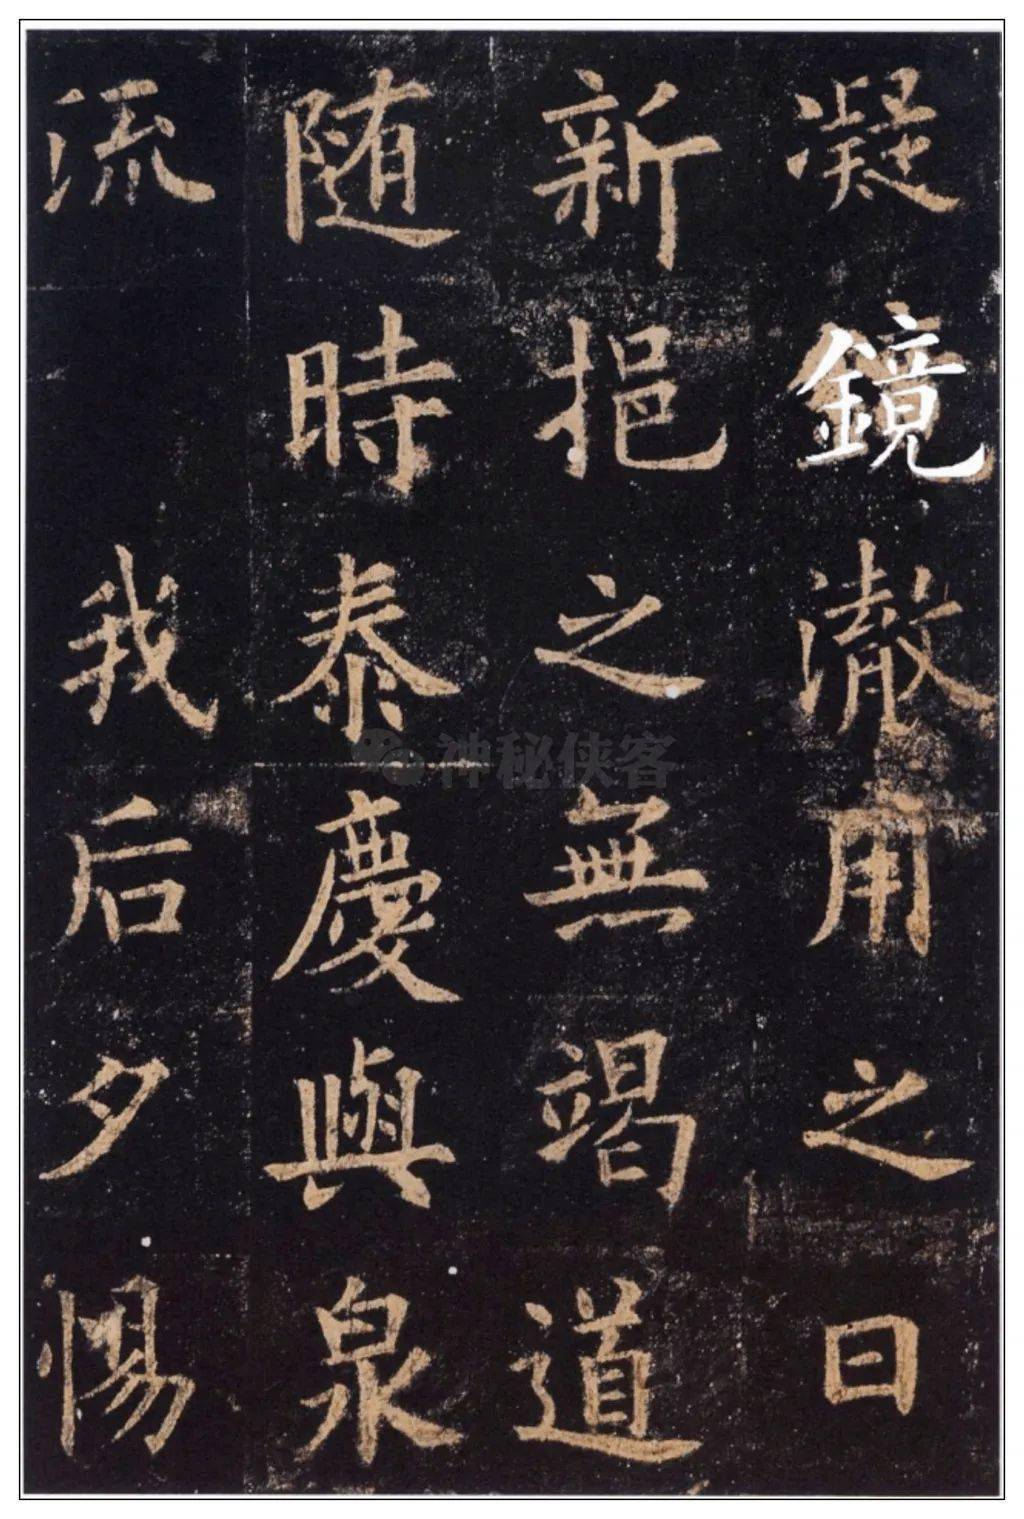 凝鏡澈用之日
新挹之無竭道
随時泰慶與泉
流我后夕惕
神秘侠客